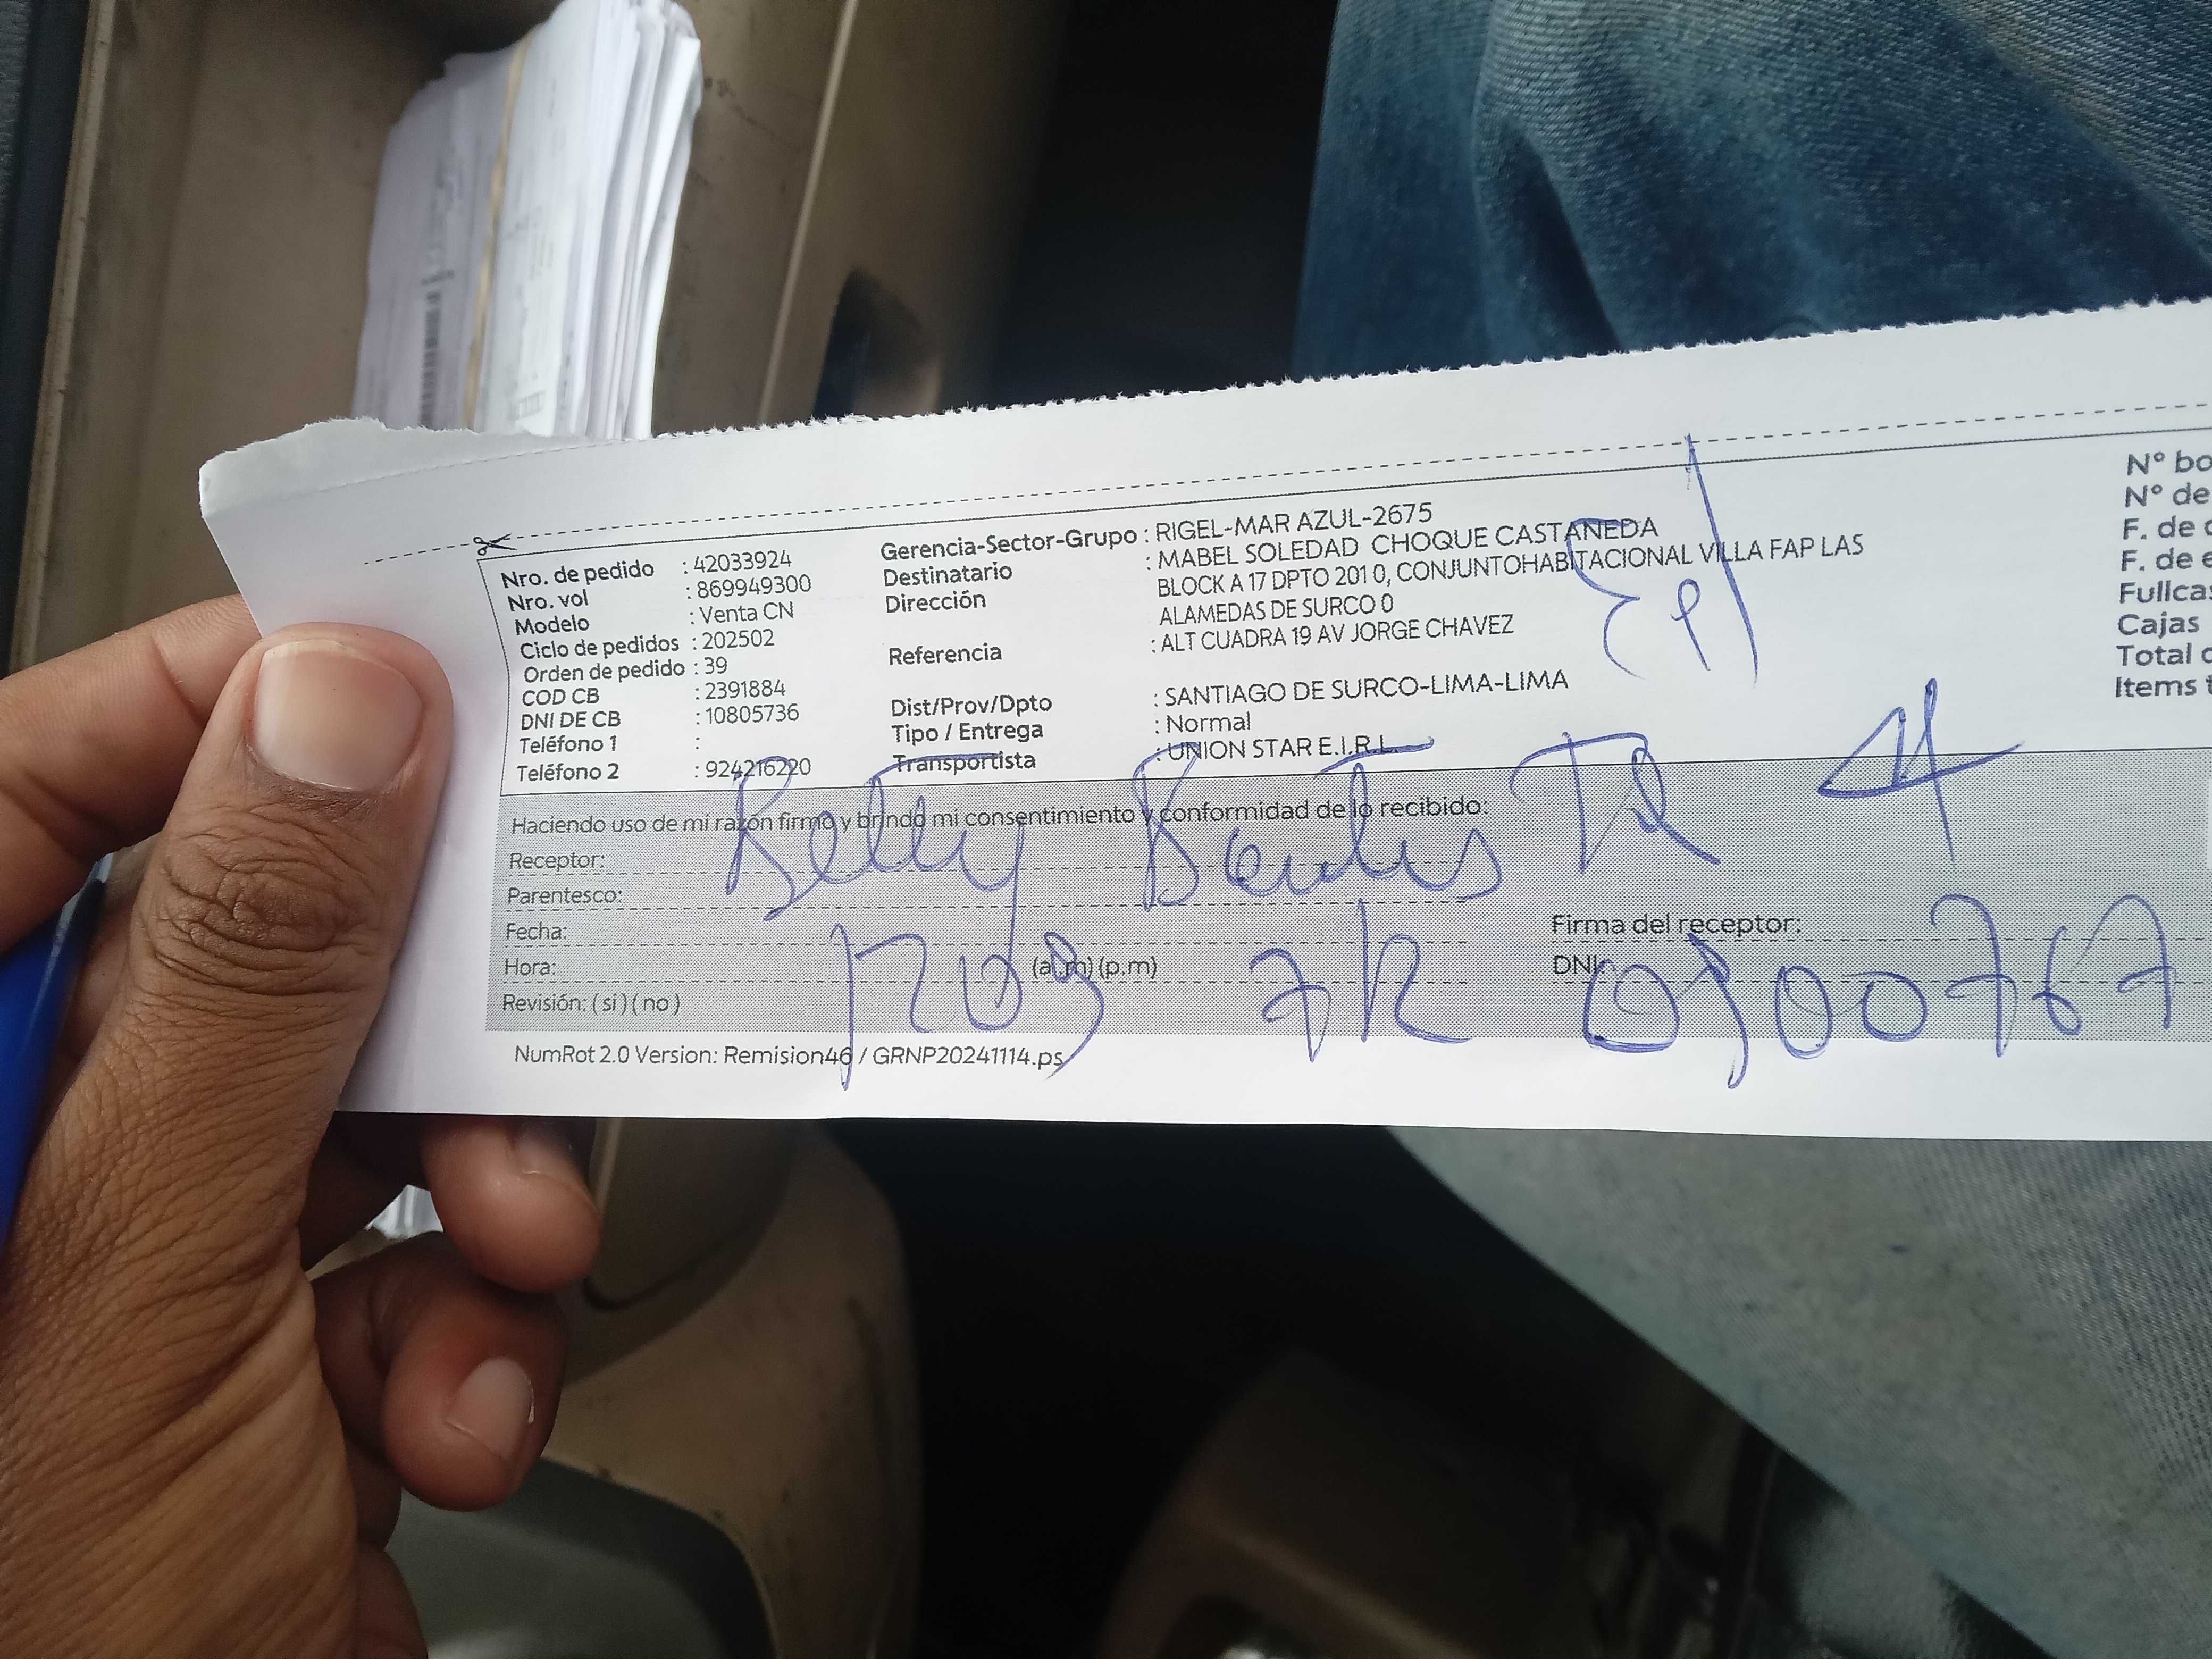 Nro. de pedido : 42033924
Nro. vol : 869949300
Modelo : Venta CN
Ciclo de pedidos : 202502
Orden de pedido : 39
COD CB : 2391884
DNI DE CB : 10805736
Teléfono 1 :
Teléfono 2 : 924216220
Gerencia-Sector-Grupo : RIGEL-MAR AZUL-2675
Destinatario : MABEL SOLEDAD CHOQUE CASTAÑEDA
Dirección BLOCK A 17 DPTO 201 0, CONJUNTOHABITACIONAL VILLA FAP LAS
ALAMEDAS DE SURCO 0
Referencia : ALT CUADRA 19 AV JORGE CHAVEZ
Dist/Prov/Dpto : SANTIAGO DE SURCO-LIMA-LIMA
Tipo / Entrega : Normal
Transportista : UNION STAR E.I.R.L.
Nº bo
Nº de
F. de
F. de e
Fullca
Cajas
Total
Items
Haciendo uso de mi razón firmo y brindo mi consentimiento y conformidad de lo recibido:
Receptor: Betty
Parentesco:
Fecha:
Hora: (a.m) (p.m)
Revisión: ( si ) ( no )
Firma del receptor:
DNI:
NumRot 2.0 Version: Remision46 / GRNP20241114.ps